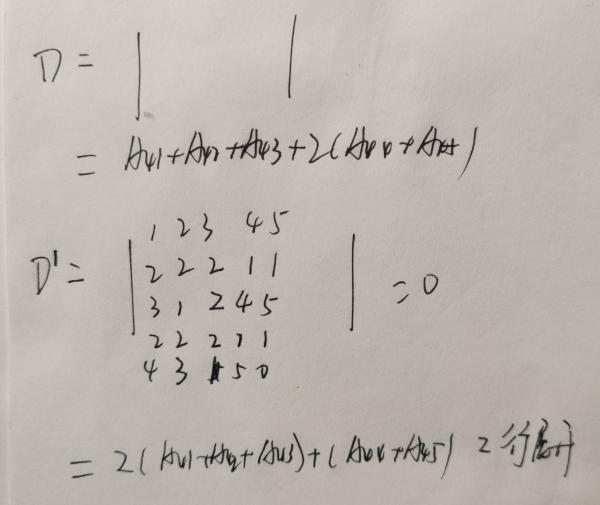 D = | |
= A41+A42+A43+2(A44+A45)
D' = | 1 2 3 4 5
2 2 2 1 1
3 1 2 4 5 | = 0
2 2 2 1 1
4 3 1 5 0
= 2(A41+A42+A43)+(A44+A45) 2行展开